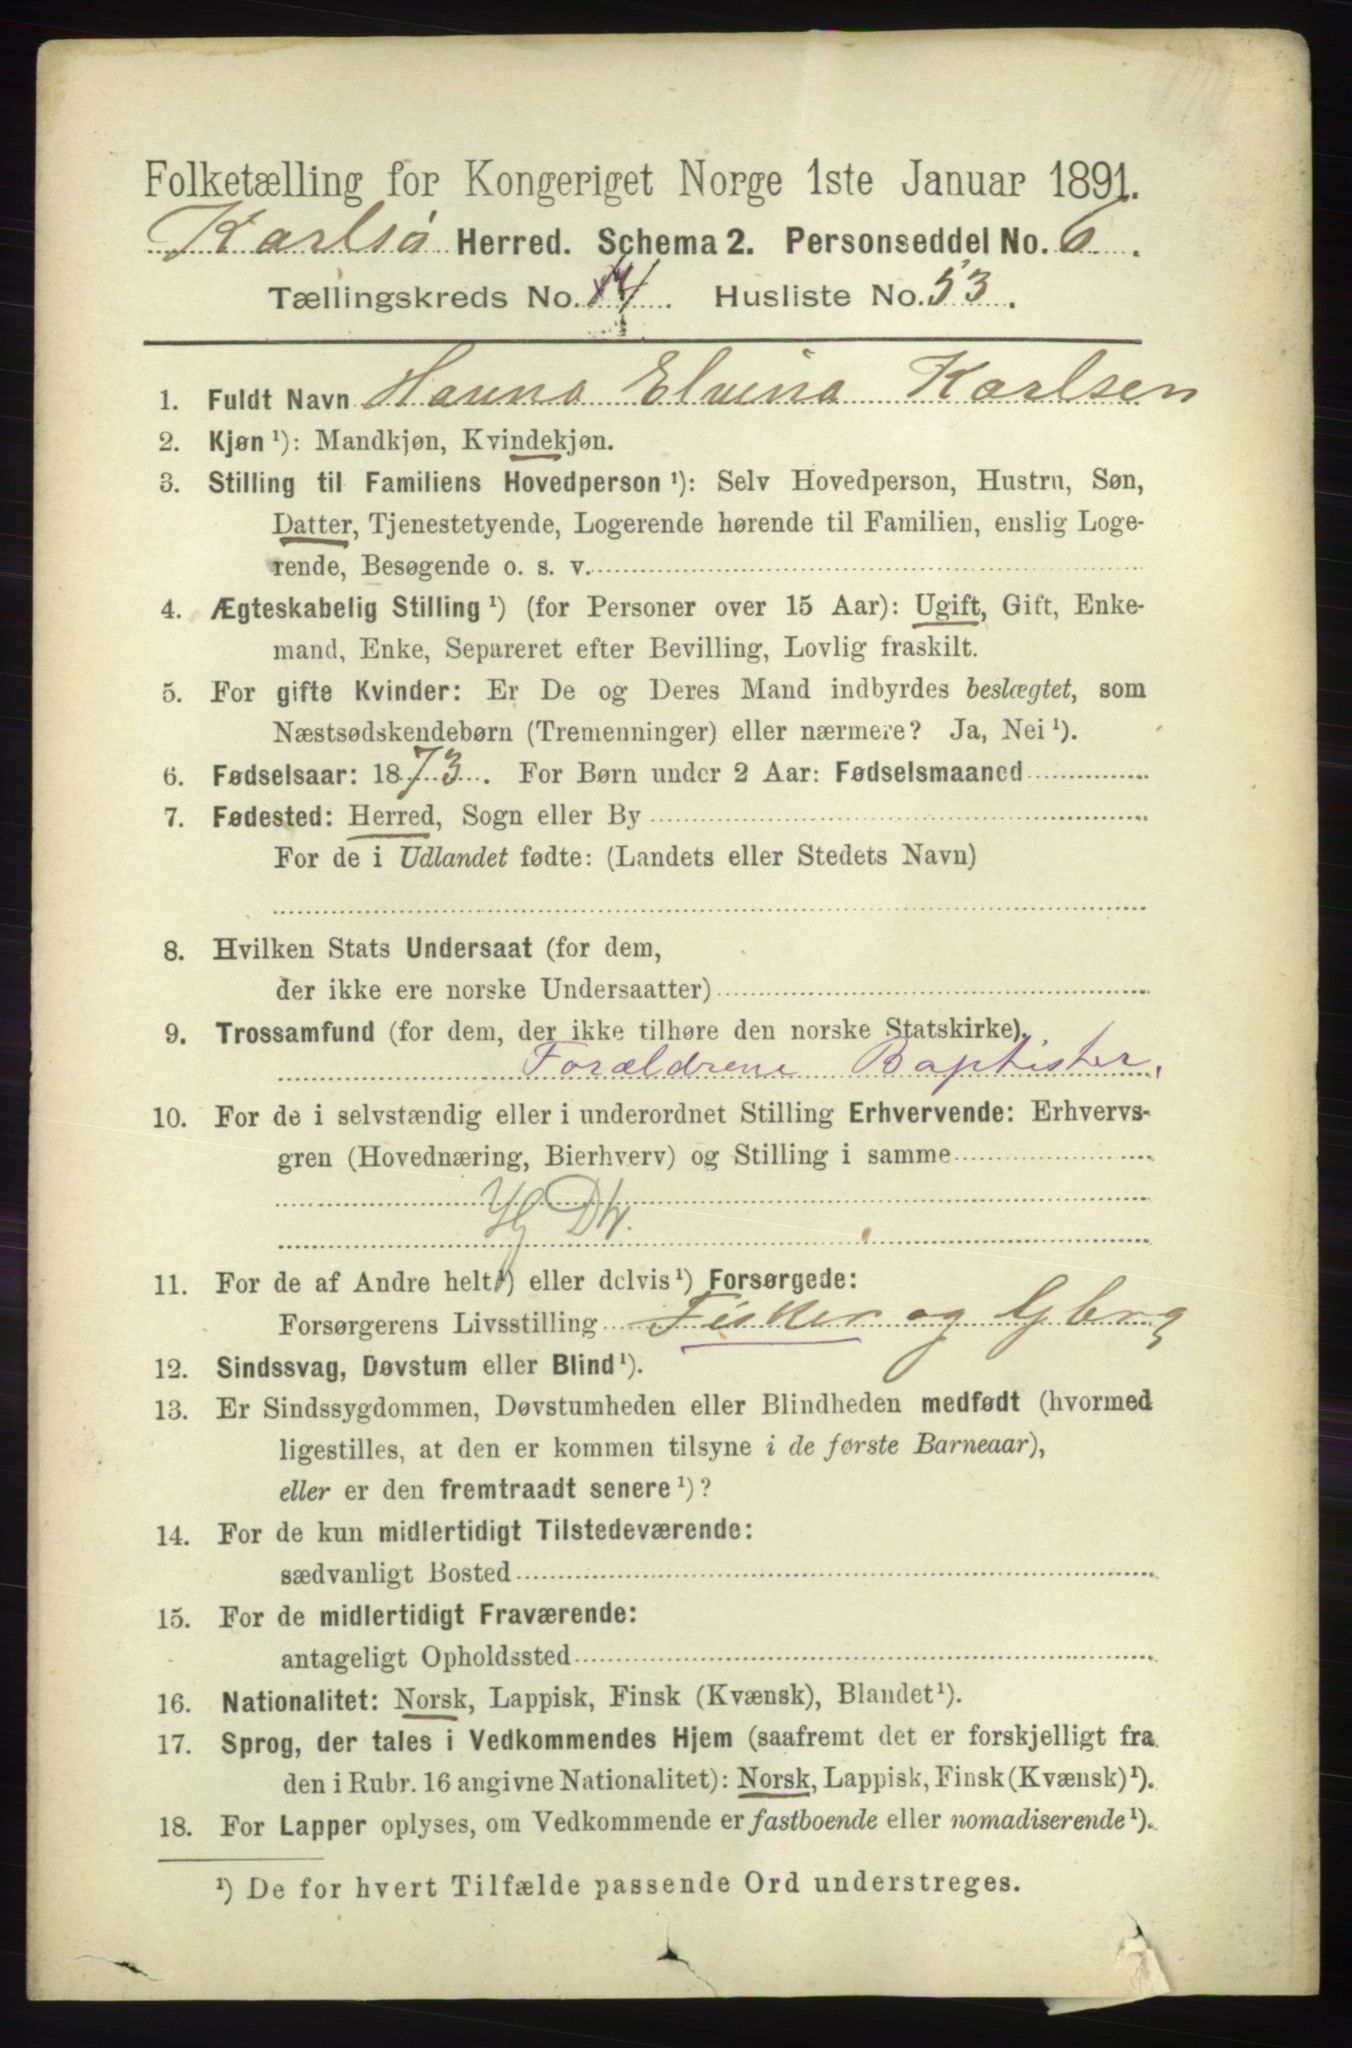 Folketælling for Kongeriget Norge 1ste Januar 1891.
Karlsø Herred. Schema 2. Personseddel No. 6.
Tællingskreds No. 4. Husliste No. 53.
1. Fuldt Navn Hanna Elvina Karlsen
2. Kjøn ¹): Mandkjøn, Kvindekjøn.
3. Stilling til Familiens Hovedperson ¹): Selv Hovedperson, Hustru, Søn,
Datter, Tjenestetyende, Logerende hørende til Familien, enslig Loge-
rende, Besøgende o. s. v.
4. Ægteskabelig Stilling ¹) (for Personer over 15 Aar): Ugift, Gift, Enke-
mand, Enke, Separeret efter Bevilling, Lovlig fraskilt.
5. For gifte Kvinder: Er De og Deres Mand indbyrdes beslægtet, som
Næstsødskendebørn (Tremenninger) eller nærmere? Ja, Nei ¹).
6. Fødselsaar: 1873. For Børn under 2 Aar: Fødselsmaaned
7. Fødested: Herred, Sogn eller By
For de i Udlandet fødte: (Landets eller Stedets Navn)
8. Hvilken Stats Undersaat (for dem,
der ikke ere norske Undersaatter)
9. Trossamfund (for dem, der ikke tilhøre den norske Statskirke).
Forældrene Baptister.
10. For de i selvstændig eller i underordnet Stilling Erhvervende: Erhvervs-
gren (Hovednæring, Bierhverv) og Stilling i samme
11. For de af Andre helt ¹) eller delvis ¹) Forsørgede:
Forsørgerens Livsstilling Fisker og Gbrg
12. Sindssvag, Døvstum eller Blind ¹).
13. Er Sindssygdommen, Døvstumheden eller Blindheden medfødt (hvormed
ligestilles, at den er kommen tilsyne i de første Barneaar),
eller er den fremtraadt senere ¹)?
14. For de kun midlertidigt Tilstedeværende:
sædvanligt Bosted
15. For de midlertidigt Fraværende:
antageligt Opholdssted
16. Nationalitet: Norsk, Lappisk, Finsk (Kvænsk), Blandet ¹).
17. Sprog, der tales i Vedkommendes Hjem (saafremt det er forskjelligt fra
den i Rubr. 16 angivne Nationalitet): Norsk, Lappisk, Finsk (Kvænsk) ¹).
18. For Lapper oplyses, om Vedkommende er fastboende eller nomadiserende ¹).
¹) De for hvert Tilfælde passende Ord understreges.